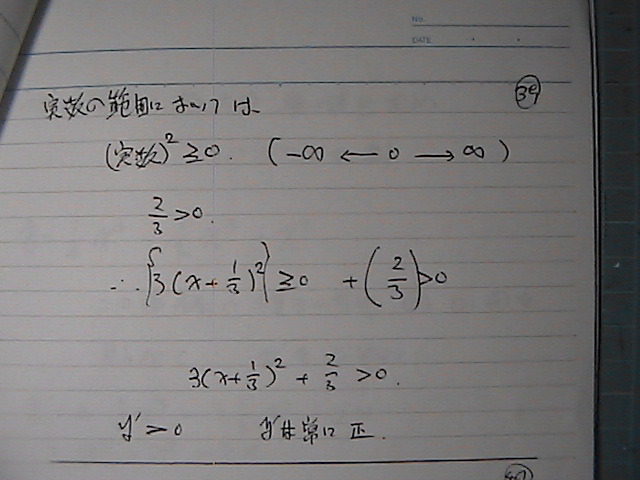 NO.
DATE
㊴
実数の範囲においては、
(実数)² ≧0. (-∞ ← 0 → ∞)
2/3 >0.
∴ {3(x+1/3)²} ≧0 + (2/3)>0
3(x+1/3)² + 2/3 >0.
y'>0 y'は常に正.